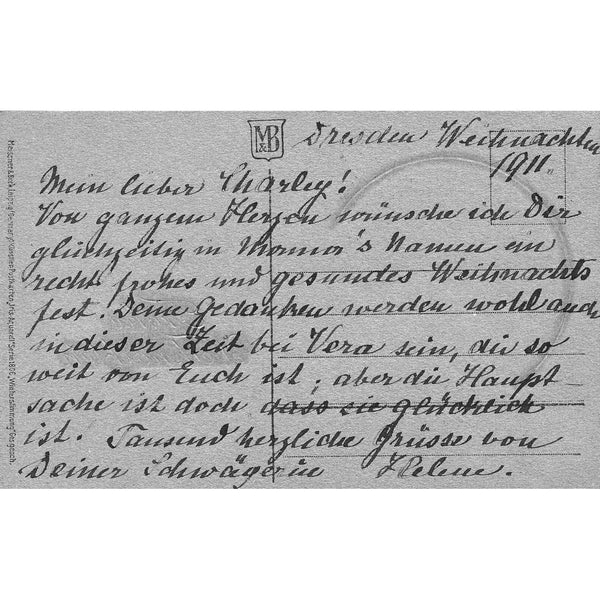 M&B
Dresden Weihnachten
1911.
Mein lieber Charley!
Von ganzem Herzen wünsche ich Dir
gleichzeitig in Mama's Namen ein
recht frohes und gesundes Weihnachts
fest. Deine Gedanken werden wohl auch
in dieser Zeit bei Vera sein, die so
weit von Euch ist; aber die Haupt-
sache ist doch dass sie glücklich
ist. Tausend herzliche Grüsse von
Deiner Schwägerin Helene.
Meissner & Buch, Leipzig